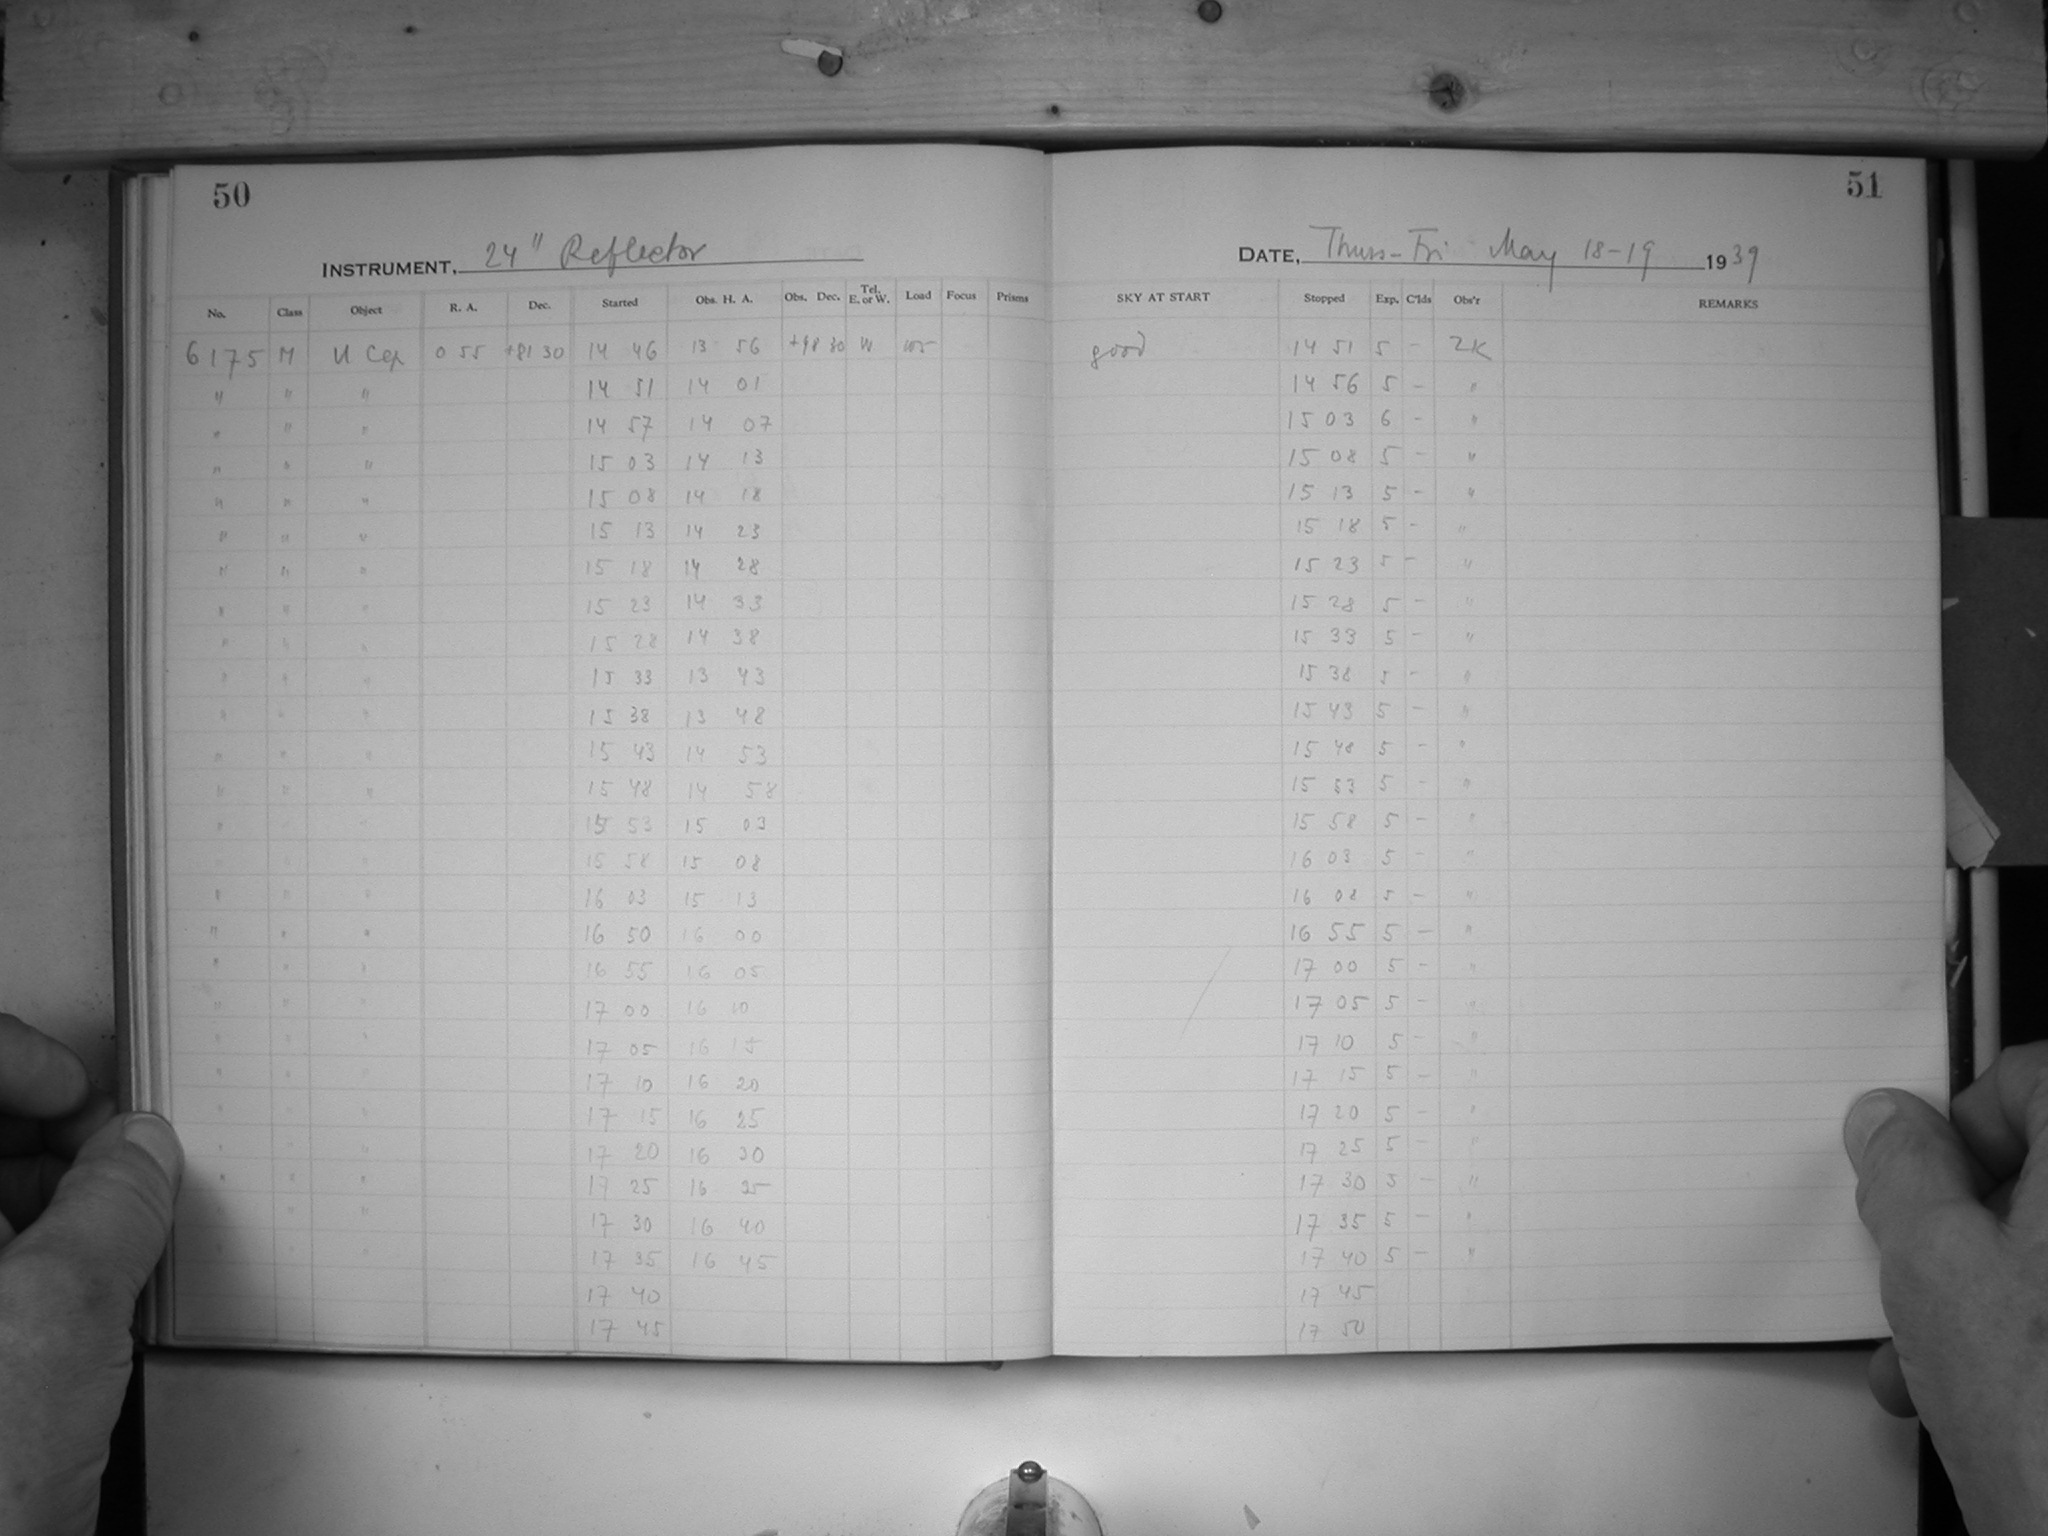 50
INSTRUMENT, 24" Reflector
No. Class Object R. A. Dec. Started Obs. H. A. Obs. Dec. Tel. E. or W. Load Focus Prisms
6175 M U Cep 0 55 +81 30 14 46 13 56 +98 30 W 105
" " " 14 51 14 01
" " " 14 57 14 07
" " " 15 03 14 13
" " " 15 08 14 18
" " " 15 13 14 23
" " " 15 18 14 28
" " " 15 23 14 33
" " " 15 28 14 38
" " " 15 33 13 43
" " " 15 38 13 48
" " " 15 43 14 53
" " " 15 48 14 58
" " " 15 53 15 03
" " " 15 58 15 08
" " " 16 03 15 13
" " " 16 50 16 00
" " " 16 55 16 05
" " " 17 00 16 10
" " " 17 05 16 15
" " " 17 10 16 20
" " " 17 15 16 25
" " " 17 20 16 30
" " " 17 25 16 35
" " " 17 30 16 40
" " " 17 35 16 45
17 40
17 45
51
DATE, Thurs-Fri May 18-19 1939
SKY AT START Stopped Exp. C'lds Obs'r REMARKS
good 14 51 5 - ZK
14 56 5 - "
15 03 6 - "
15 08 5 - "
15 13 5 - "
15 18 5 - "
15 23 5 - "
15 28 5 - "
15 33 5 - "
15 38 5 - "
15 43 5 - "
15 48 5 - "
15 53 5 - "
15 58 5 - "
16 03 5 - "
16 08 5 - "
16 55 5 - "
17 00 5 - "
17 05 5 - "
17 10 5 - "
17 15 5 - "
17 20 5 - "
17 25 5 - "
17 30 5 - "
17 35 5 - "
17 40 5 - "
17 45
17 50